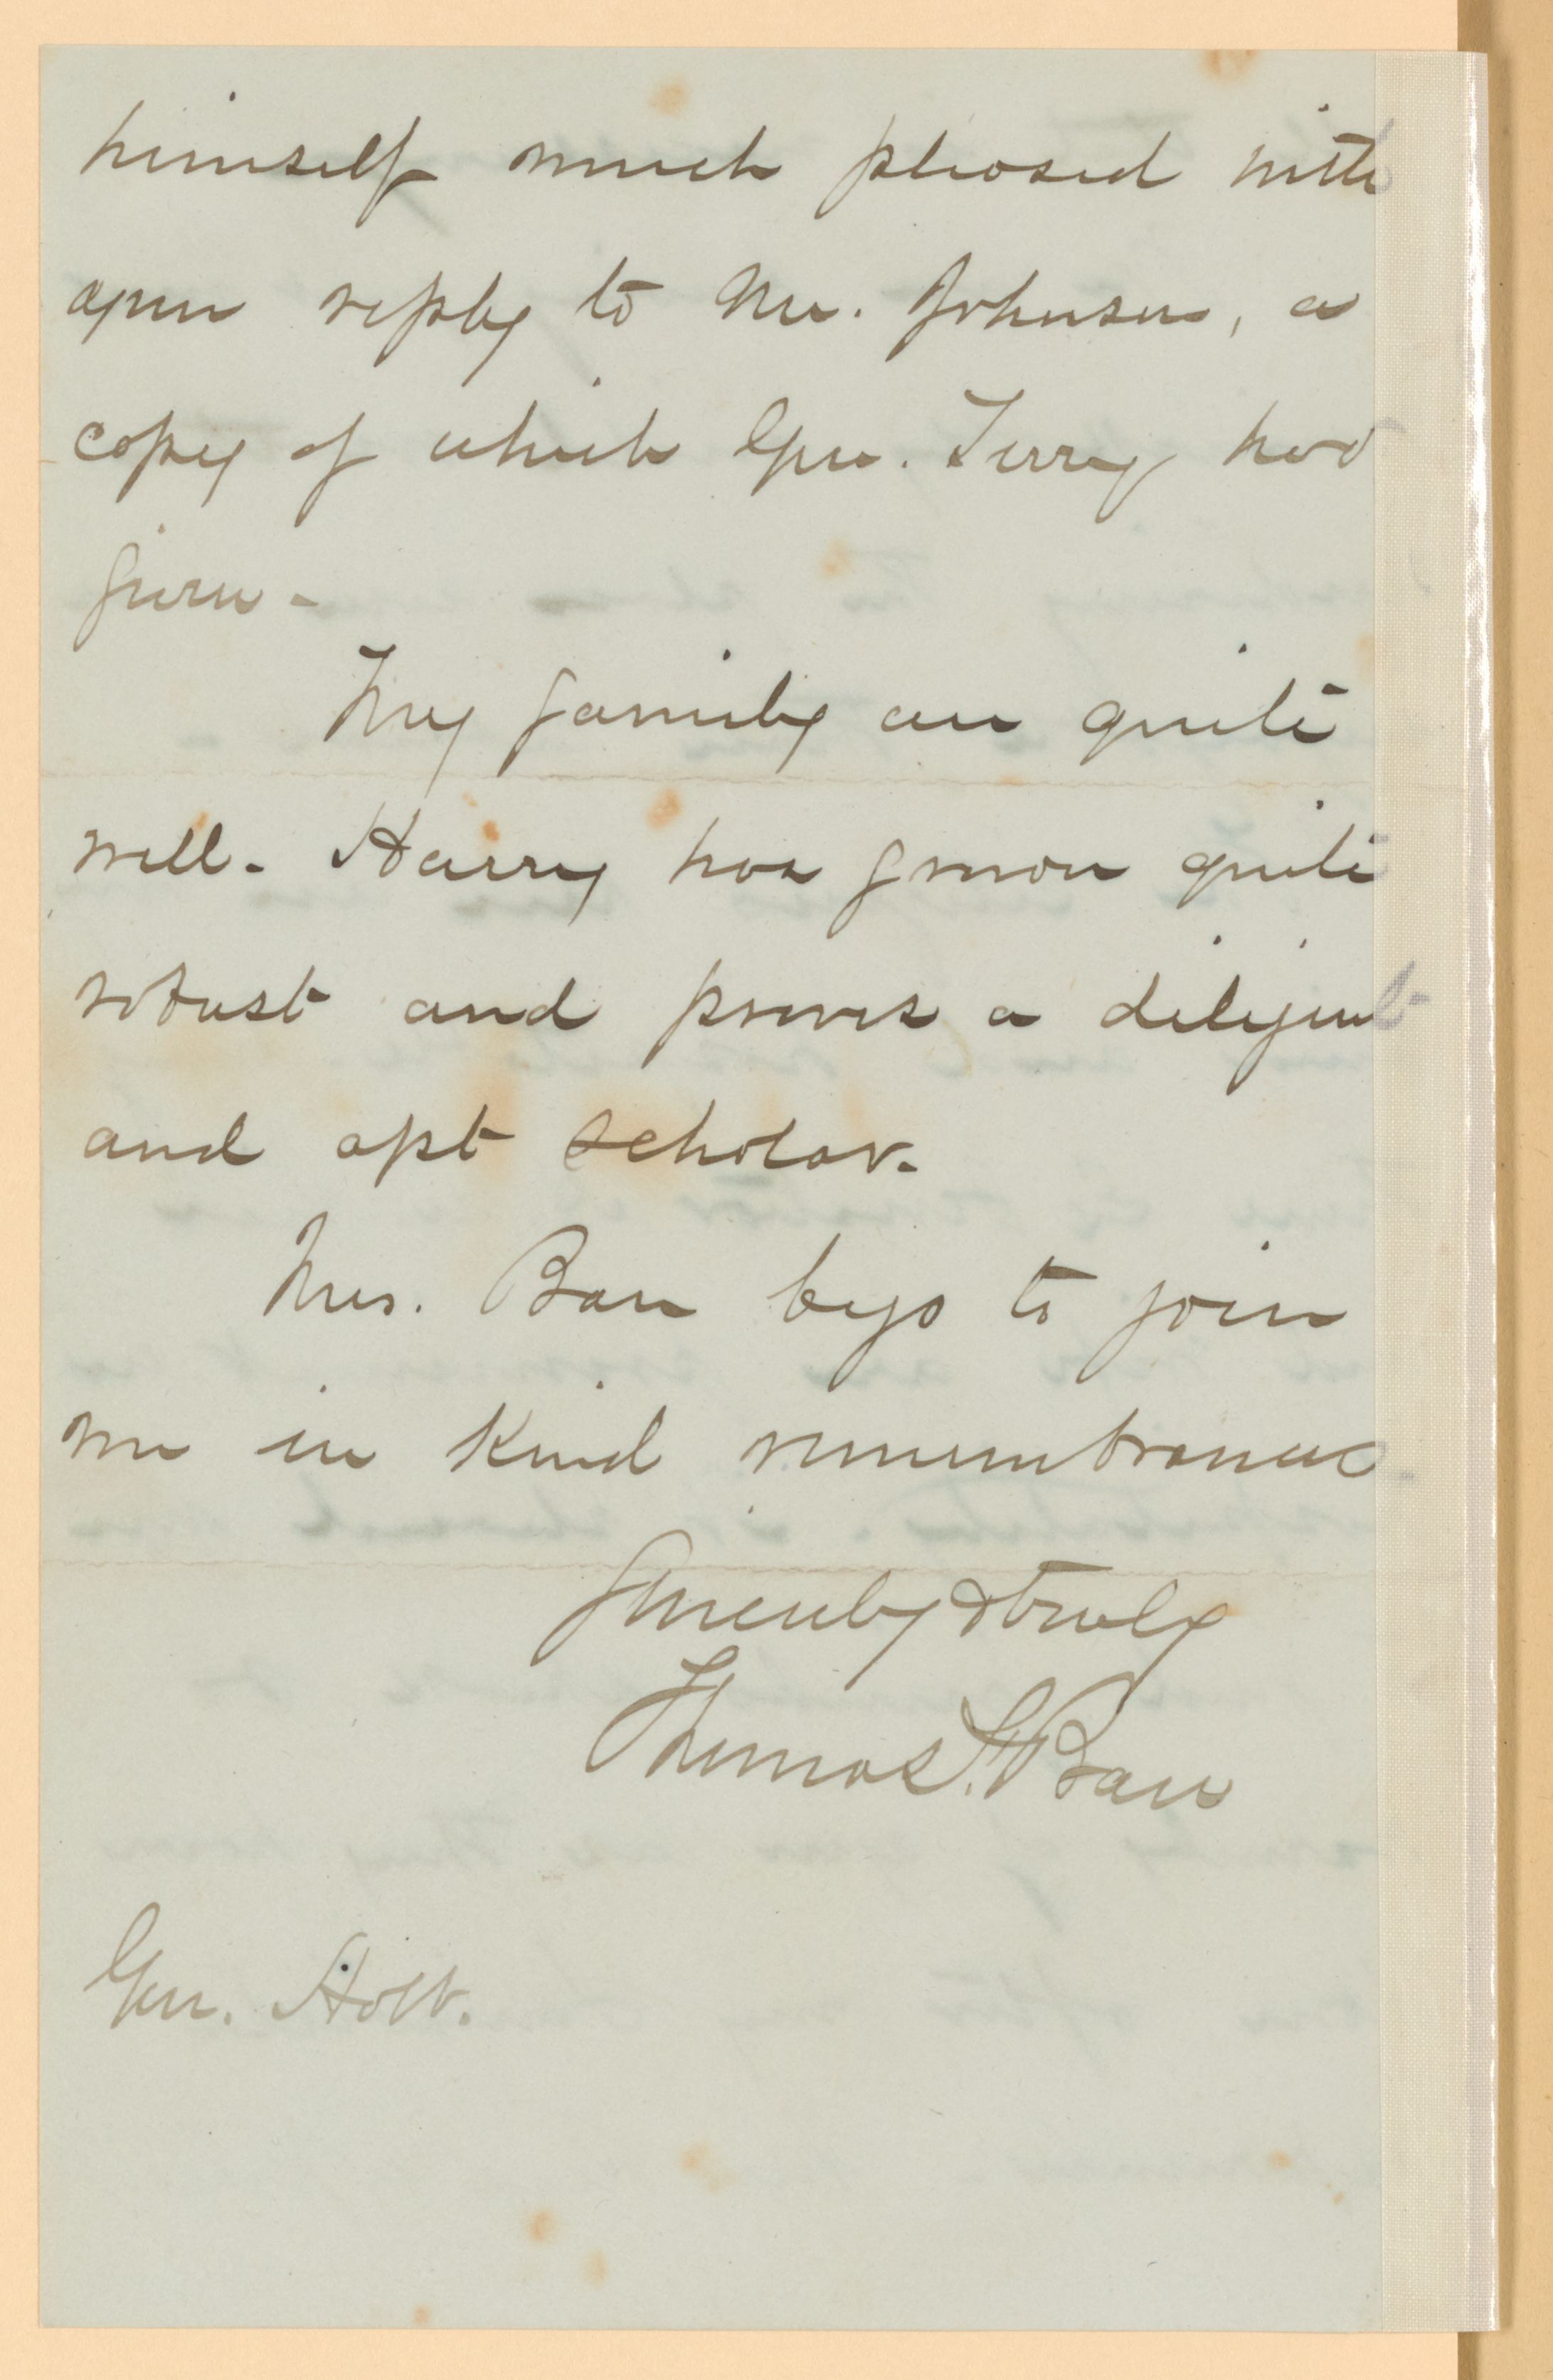 himself much pleased with
your reply to Mr. Johnson, a
copy of which Gen. Terry had
given -
My family are quite
well - Harry has grown quite
robust and proves a diligent
and apt scholar.
Mrs. Barr begs to join
me in kind remembrance
Sincerely & truly
Thomas F. Barr
Gen. Holt.